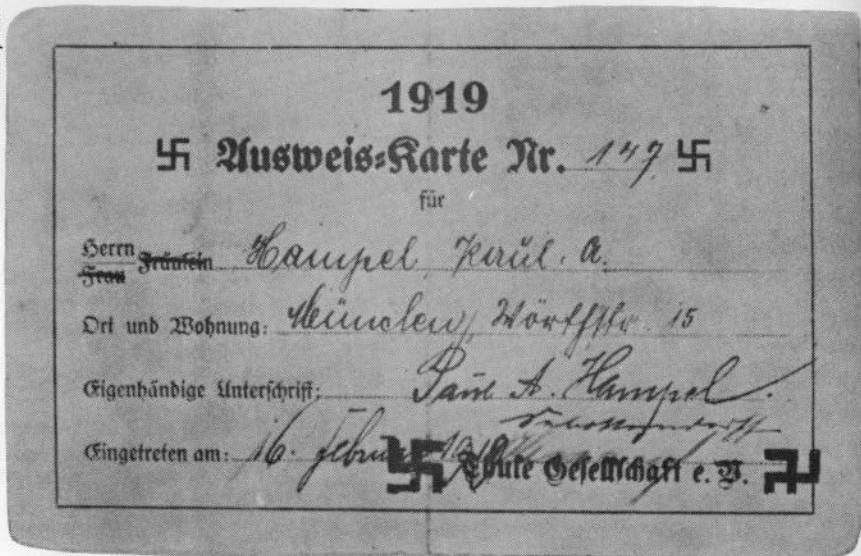 1919
卐 Ausweis-Karte Nr. 147 卐
für
Herrn Frau Fräulein Hampel, Paul. A.
Ort und Wohnung: München, Wörthstr. 15
Eigenhändige Unterschrift: Paul A. Hampel.
Sebottendorff
Eingetreten am: 16. Februar 1919
Thule Gesellschaft e. V.